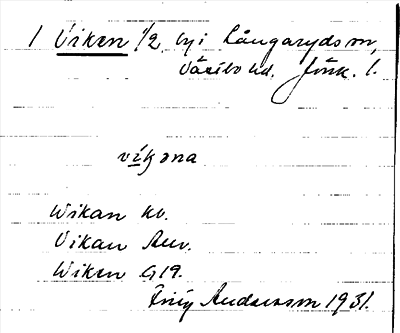 1 Viken 1/2, by i Långaryds sn,
Västbo hd. Jönk. l.
víkɜna
Wikan Kb.
Vikan Anv.
Wiken G19.
Andersson 1931.